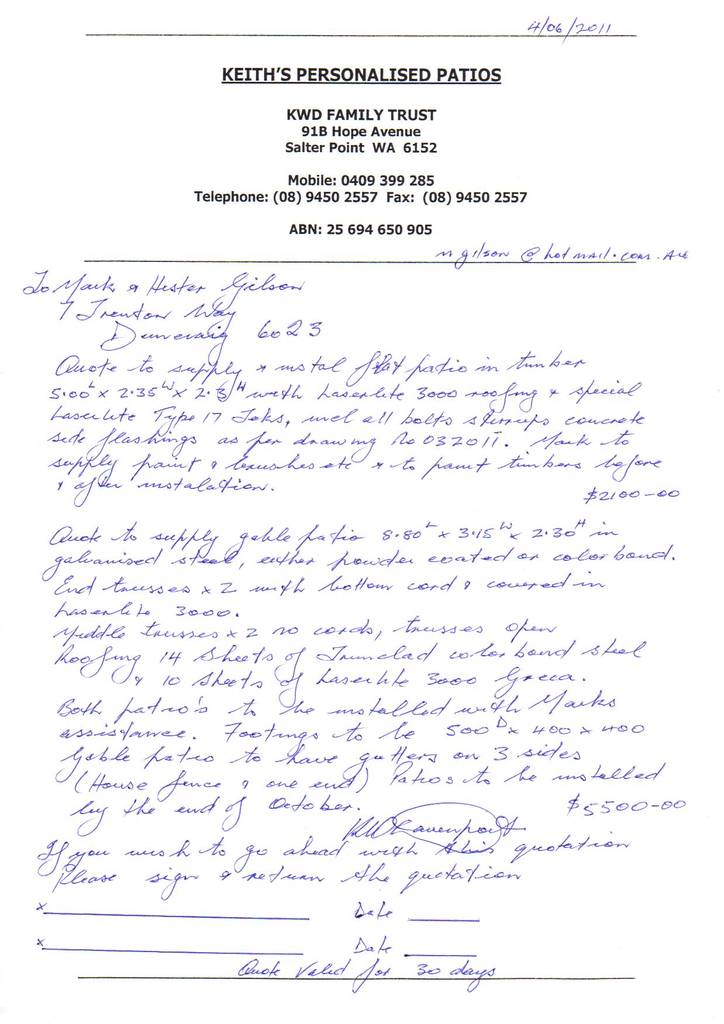 4/06/2011
KEITH'S PERSONALISED PATIOS
KWD FAMILY TRUST
91B Hope Avenue
Salter Point WA 6152
Mobile: 0409 399 285
Telephone: (08) 9450 2557 Fax: (08) 9450 2557
ABN: 25 694 650 905
mgilson@hotmail.com.Au
To Mark & Hester Gilson
7 Trenton Way
Duncraig 6023
Quote to supply & instal flat patio in timber
5.00L x 2.35W x 2.3H with Laserlite 3000 roofing & special
Laserlite Type 17 Teks, incl all bolts stirrups concrete
side flashings as per drawing No 032011. Mark to
supply paint & brushes etc & to paint timbers before
& after instalation.
$2100-00
Quote to supply gable patio 8.80L x 3.15W x 2.30H in
galvanised steel, either powder coated or colorbond.
End trusses x 2 with bottom cord & covered in
Laserlite 3000.
Middle trusses x 2 no cords, trusses open
Roofing 14 Sheets of Trimclad colorbond steel
& 10 Sheets of Laserlite 3000 Greca.
Both patio's to be installed with Marks
assistance. Footings to be 500D x 400 x 400
Gable patio to have gutters on 3 sides
(House fence & one end) Patios to be installed
by the end of October.
$5500-00
KWDavenport
If you wish to go ahead with this quotation
Please sign & return the quotation
x Date
x Date
Quote Valid for 30 days